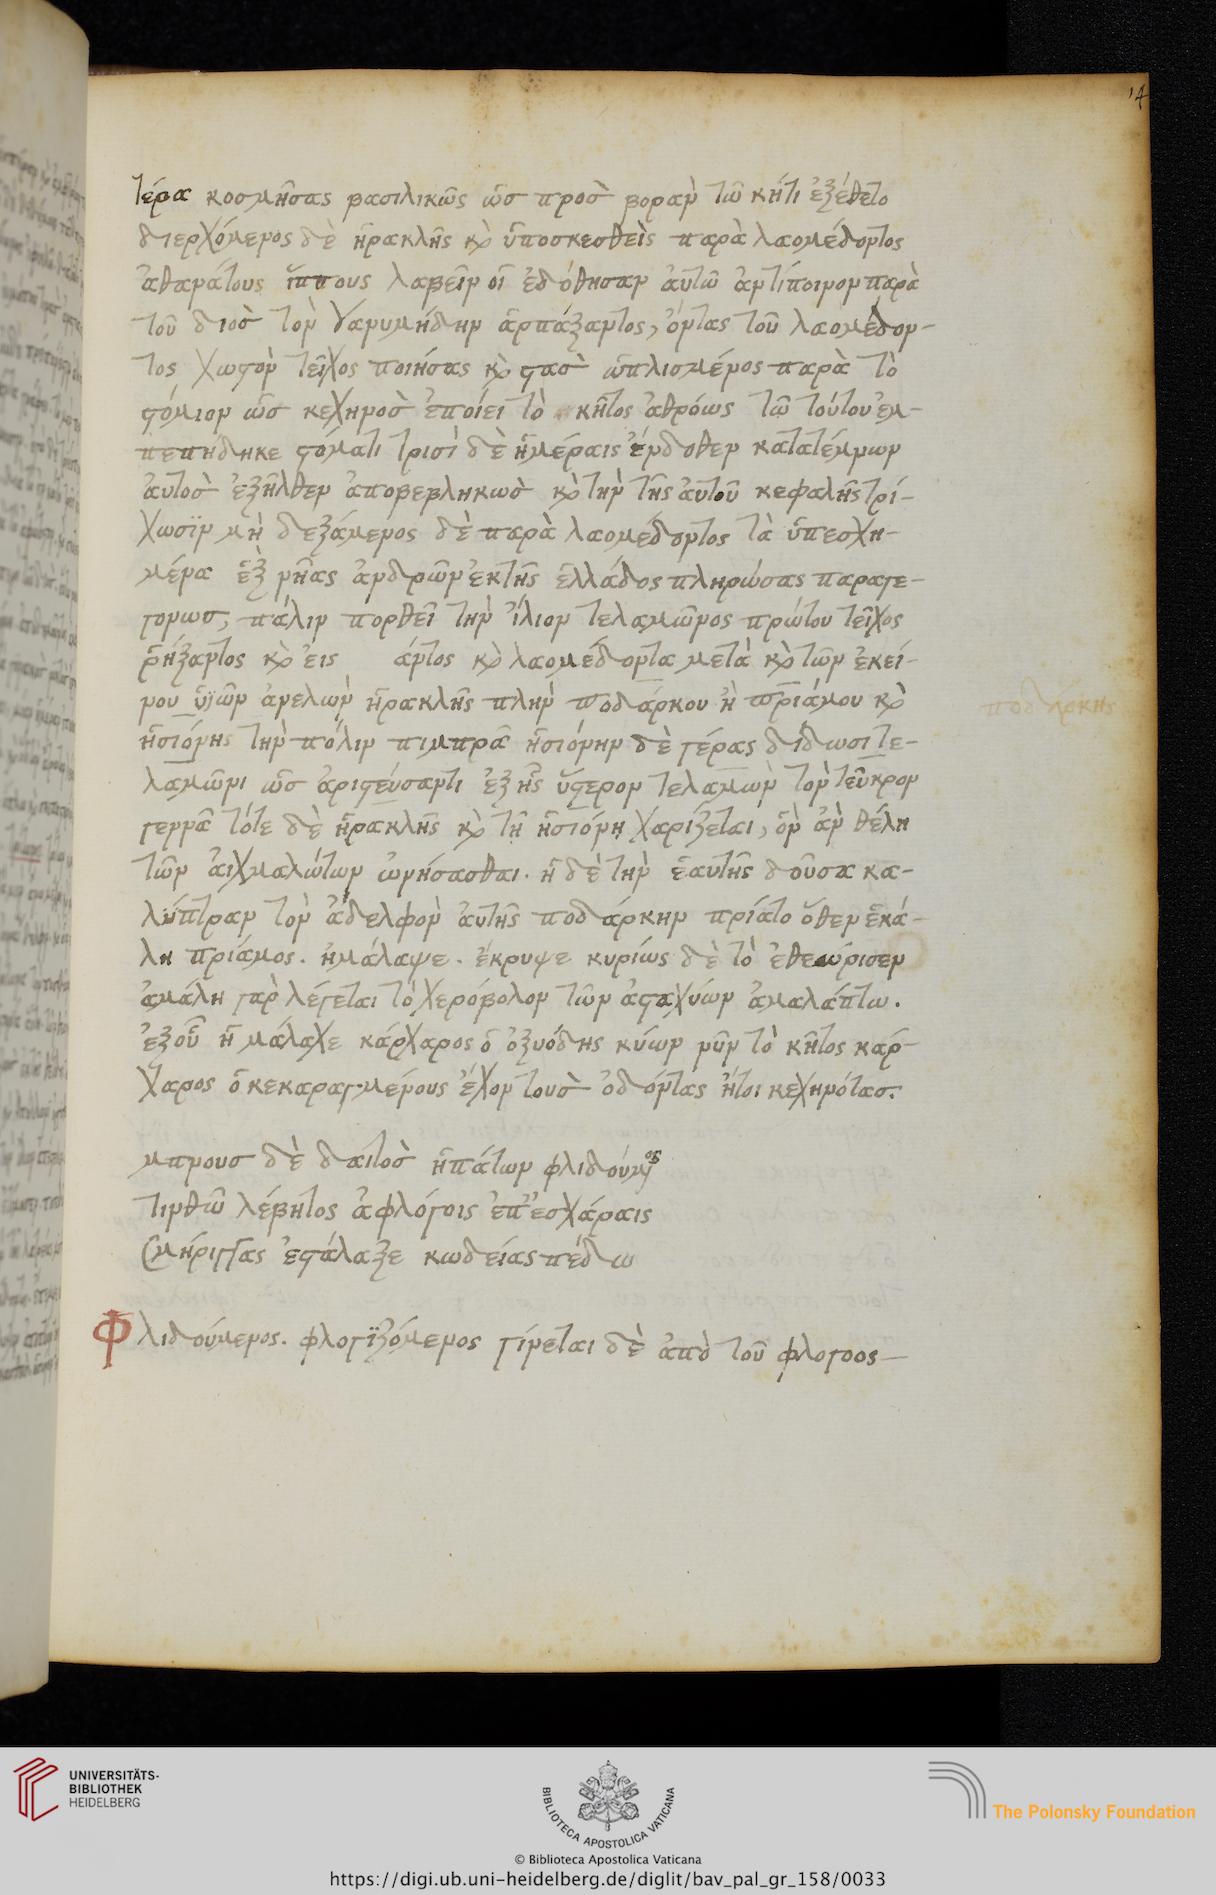 14
τέρα κοσμήσας βασιλικῶς ὡσ προσ βορὰν τῶ κήτι ἐξέθετο
διερχόμενος δὲ ἡρακλῆς κὶ ὑποσκεσθεὶς παρὰ λαομέδοντος
ἀθανάτους ἵππους λαβεῖν οἳ ἐδόθησαν ἀυτῶ ἀντίποινον παρὰ
τοῦ διοσ τὸν γανυμήδην ἁρπάξαντος, ὄντας τοῦ λαομέδον-
τος χωστὸν τεῖχος ποιήσας κὶ στασ ὡπλισμένος παρὰ τὸ
στόμιον ὡσ κεχηνοσ ἐποίει τὸ κῆτος ἀθρόως τῶ τούτου ἐμ-
πεπήδηκε στόματι τρισὶ δὲ ἡμέραις ἔνδοθεν κατατέμνων
ἀυτοσ ἐξῆλθεν ἀποβεβληκωσ κὶ τὴν τῆς ἀυτοῦ κεφαλῆς τρί-
χωσϊν μὴ δεξάμενος δὲ παρὰ λαομέδοντος τὰ ὑπεσχη-
μένα ἓξ νῆας ἀνδρῶν ἐκ τῆς ἑλλάδος πληρώσας παραγε-
γονωσ, πάλιν πορθεῖ τὴν ἴλιον τελαμῶνος πρώτου τεῖχος
ῥήξαντος κὶ εἰς άντος κὶ λαομέδοντα μετὰ κὶ τῶν ἐκεί-
νου ὑϊῶν ἀνελὼν ἡρακλῆς πλὴν ποδάρκου ἢ πριάμου κὶ
ποδάρκης
ἡσιόνης τὴν πόλιν πιμπρᾶ ἡσιόνην δὲ γέρας δίδωσι τε-
λαμῶνι ὡσ ἀριστεύσαντι ἐξ ἧς ὕστερον τελαμὼν τὸν τεῦκρον
γεννᾶ τότε δὲ ἡρακλῆς κὶ τῇ ἡσιόνῃ χαρίζεται, ὃν ἀν θέλη
τῶν ἀιχμαλώτων ὠνήσασθαι. ἡ δὲ τὴν ἑαυτῆς δοῦσα κα-
λύπτραν τὸν ἀδελφὸν ἀυτῆς ποδάρκην πρίατο ὅθεν ἐκά-
λη πρίαμος. ἠμάλαψε. ἔκρυψε κυρίως δὲ τὸ ἐθεώρισεν
ἀμάλη γαρ λέγεται τὸ χερόβολον τῶν ἀσταχύων ἀμαλάπτω.
ἐξοῦ ἡ μάλαχε κάρχαρος ὁ ὀξυόδης κύων νῦν τὸ κῆτος κάρ-
χαρος ὁ κεκαραγμένους ἔχον τουσ ὀδόντας ἤτοι κεχηνότασ.
μπρουσ δὲ δαιτοσ ἡπάτων φλιδούμενος
τινθῶ λέβητος ἀφλόγοις ἐπ' ἐσχάραις
Σμήριγγας ἐστάλαξε κωδείας πέδω
Φλιδούμενος. φλογϊζόμενος γίνεται δὲ ἀπὸ τοῦ φλογοος-
UNIVERSITÄTS-
BIBLIOTHEK
HEIDELBERG
BIBLIOTECA APOSTOLICA VATICANA
The Polonsky Foundation
© Biblioteca Apostolica Vaticana
https://digi.ub.uni-heidelberg.de/diglit/bav_pal_gr_158/0033